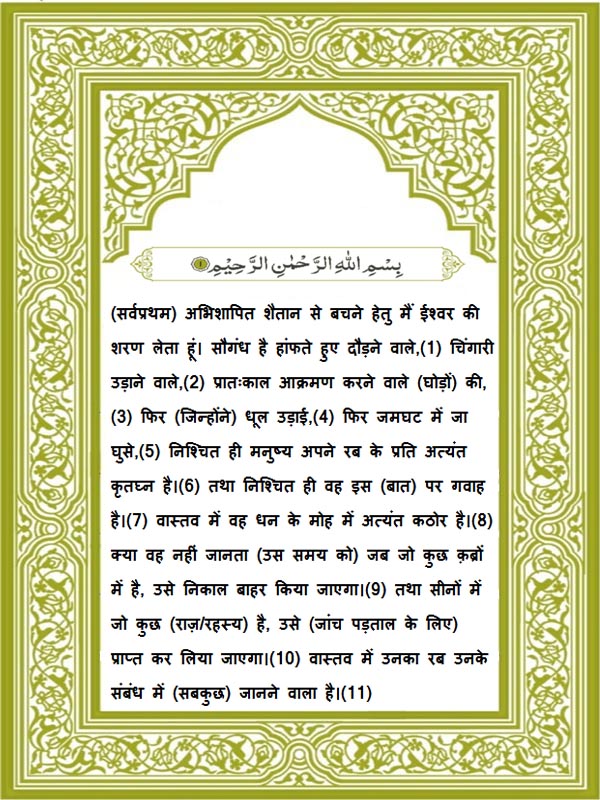 بِسْمِ اللهِ الرَّحْمٰنِ الرَّحِيْمِ ۝۱
(सर्वप्रथम) अभिशापित शैतान से बचने हेतु मैं ईश्वर की
शरण लेता हूं। सौगंध है हांफते हुए दौड़ने वाले,(1) चिंगारी
उड़ाने वाले,(2) प्रातःकाल आक्रमण करने वाले (घोड़ों) की,
(3) फिर (जिन्होंने) धूल उड़ाई,(4) फिर जमघट में जा
घुसे,(5) निश्चित ही मनुष्य अपने रब के प्रति अत्यंत
कृतघ्न है।(6) तथा निश्चित ही वह इस (बात) पर गवाह
है।(7) वास्तव में वह धन के मोह में अत्यंत कठोर है।(8)
क्या वह नहीं जानता (उस समय को) जब जो कुछ क़ब्रों
में है, उसे निकाल बाहर किया जाएगा।(9) तथा सीनों में
जो कुछ (राज़/रहस्य) है, उसे (जांच पड़ताल के लिए)
प्राप्त कर लिया जाएगा।(10) वास्तव में उनका रब उनके
संबंध में (सबकुछ) जानने वाला है।(11)